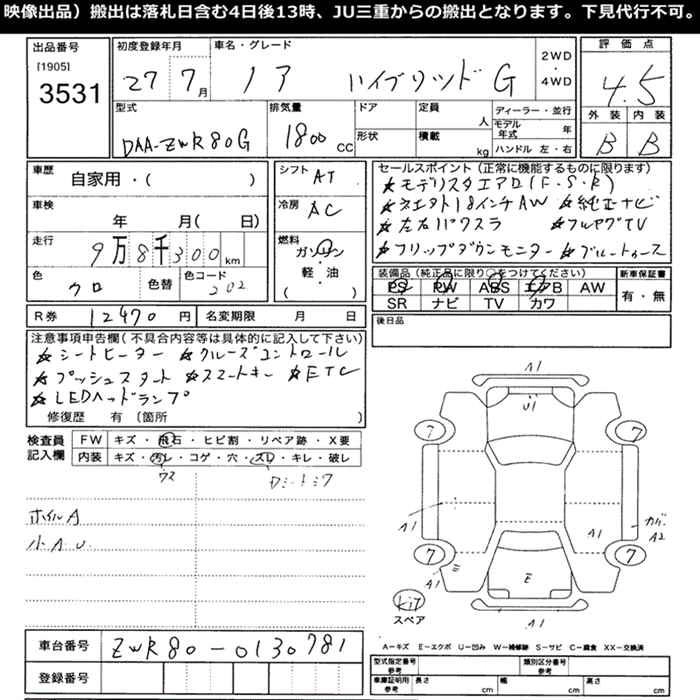 映像出品）搬出は落札日含む4日後13時、JU三重からの搬出となります。下見代行不可。
出品番号 初度登録年月 車名・グレード 2WD・4WD 評価点
［1905］
3531 27 7月 ノア ハイブリッド G 4.5
型式 排気量 ドア 定員 人 ディーラー・並行 外装 内装
DAA-ZWR80G 1800 CC 形状 積載 kg モデル年式 年 B B
ハンドル 左・右
車歴 自家用・( ) シフト AT セールスポイント（正常に機能するものに限ります）
★モデリスタエアロ(F・S・R)
車検 年 月( 日) 冷房 AC ★18インチAW ★純正ナビ
★左右パワスラ ★フルセグTV
走行 9万8千300km 燃料 ガソリン・軽・油 ( )
★フリップダウンモニター ★ブルートゥース
色 クロ 色替 色コード 202 装備品（純正品に限り○をつけてください） 新車保証書
PS PW ABS エアB AW 有・無
SR ナビ TV カワ
R券 12470円 名変期限 月 日 後日品
注意事項申告欄（不具合内容等は具体的に記入して下さい）
★シートヒーター ★クルーズコントロール
★プッシュスタート ★スマートキー ★ETC
★LEDヘッドランプ
修復歴 有〔箇所 〕
検査員記入欄 FW キズ・飛石・ヒビ割・リペア跡・X要
内装 キズ・汚レ・コゲ・穴・スレ・キレ・破レ
ウス
ホイルA
小AU
A1
U1
7 7
A1 A1 A2
7 7
A1 E
kit
スペア
A1
A－キズ E－エクボ U－凹み W－補修跡 S－サビ C－腐食 XX－交換済
車台番号 ZWR80-0130781
登録番号
型式指定番号 参考 類別区分番号 参考
車庫証明用 参考 長さ cm 幅 cm 高さ cm